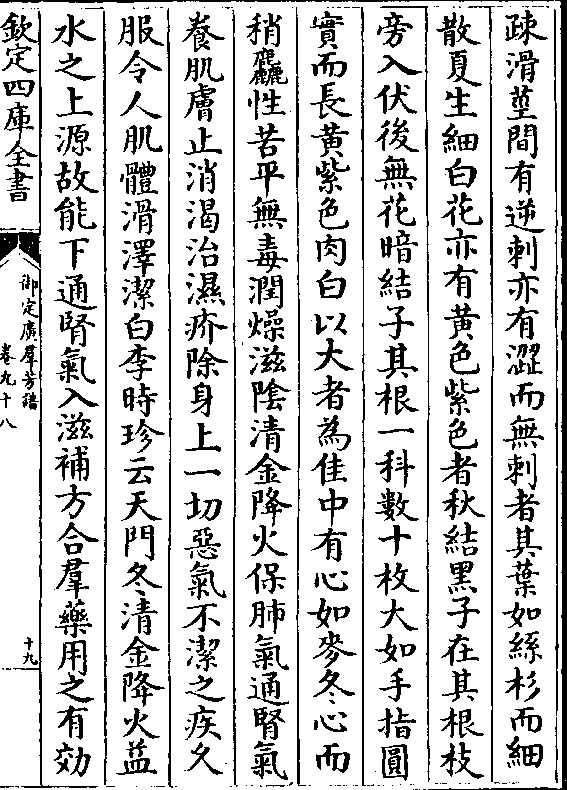 疎滑莖間有逆刺亦有澀而無刺者其葉如絲杉而細
散夏生細白花亦有黃色紫色者秋結黑子在其根枝
旁入伏後無花暗結子其根一科數十枚大如手指圓
實而長黃紫色肉白以大者為佳中有心如麥冬心而
稍麤性苦平無毒潤燥滋陰清金降火保肺氣通腎氣
養肌膚止消渴治濕疥除身上一切惡氣不潔之疾久
服令人肌體滑澤潔白李時珍云天門冬清金降火益
水之上源故能下通腎氣入滋補方合羣藥用之有効
欽定四庫全書
御定廣羣芳譜
卷九十八
十九